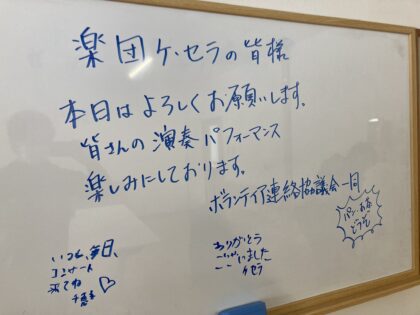 楽団ケ・セラの皆様
本日はよろしくお願いします。
皆さんの演奏パフォーマンス
楽しみにしております。
ボランティア連絡協議会一同
どうぞ
いつも、毎日、
コンサート
来てね
ありがとう
ございました
ケセラ